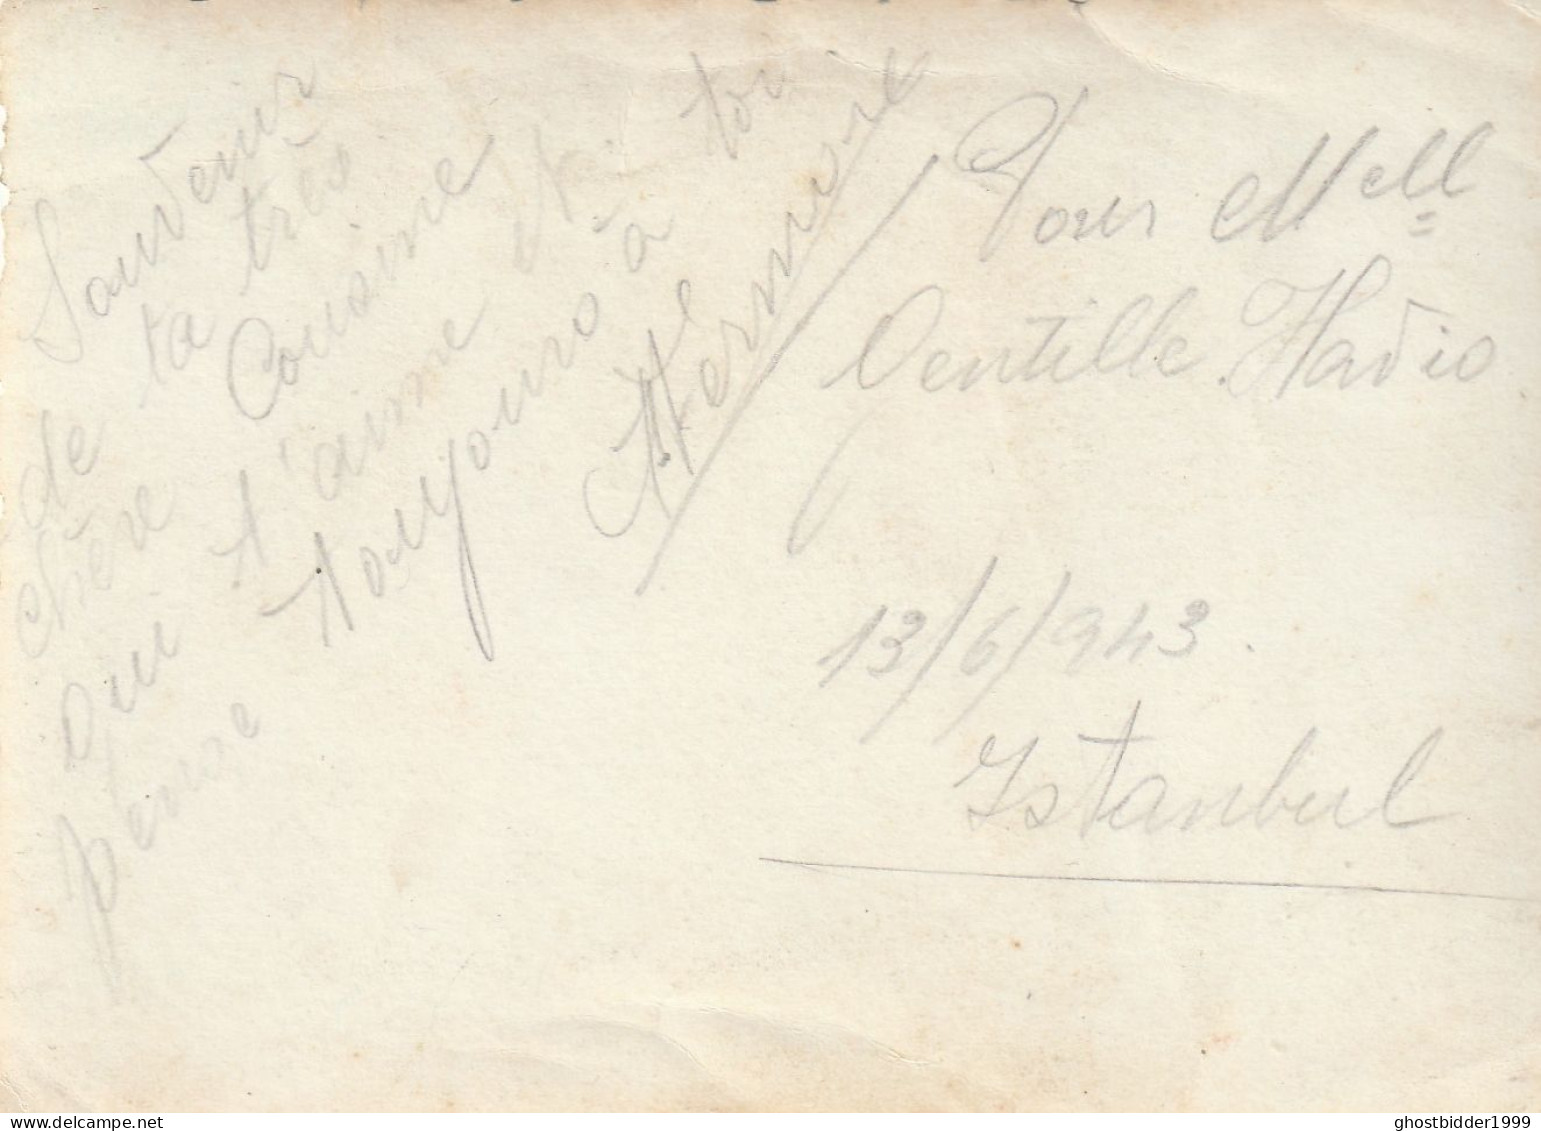 Souvenir
de ta très
chère Cousine
qui t'aime et
pense toujours à toi
Pour Mell
Gentille Hadio
13/6/943.
Istanbul
delcampe.net
ghostbidder1999